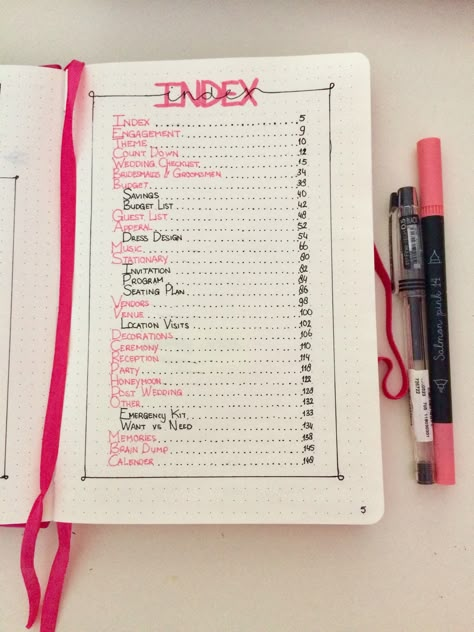 INDEX
index
INDEX 5
ENGAGEMENT 9
THEME 10
COUNT DOWN 12
WEDDING CHECKLIST 15
BRIDESMAIDS & GROOMSMEN 34
BUDGET 39
SAVINGS 40
BUDGET LIST 42
GUEST LIST 48
APPERAL 52
DRESS DESIGN 54
MUSIC 66
STATIONARY 80
INVITATION 82
PROGRAM 84
SEATING PLAN 86
VENDORS 98
VENUE 100
LOCATION VISITS 102
DECORATIONS 106
CEREMONY 110
RECEPTION 114
PARTY 118
HONEYMOON 122
POST WEDDING 128
OTHER 132
EMERGENCY KIT 133
WANT VS NEED 134
MEMORIES 138
BRAIN DUMP 145
CALENDER 148
5
Salmon pink 14